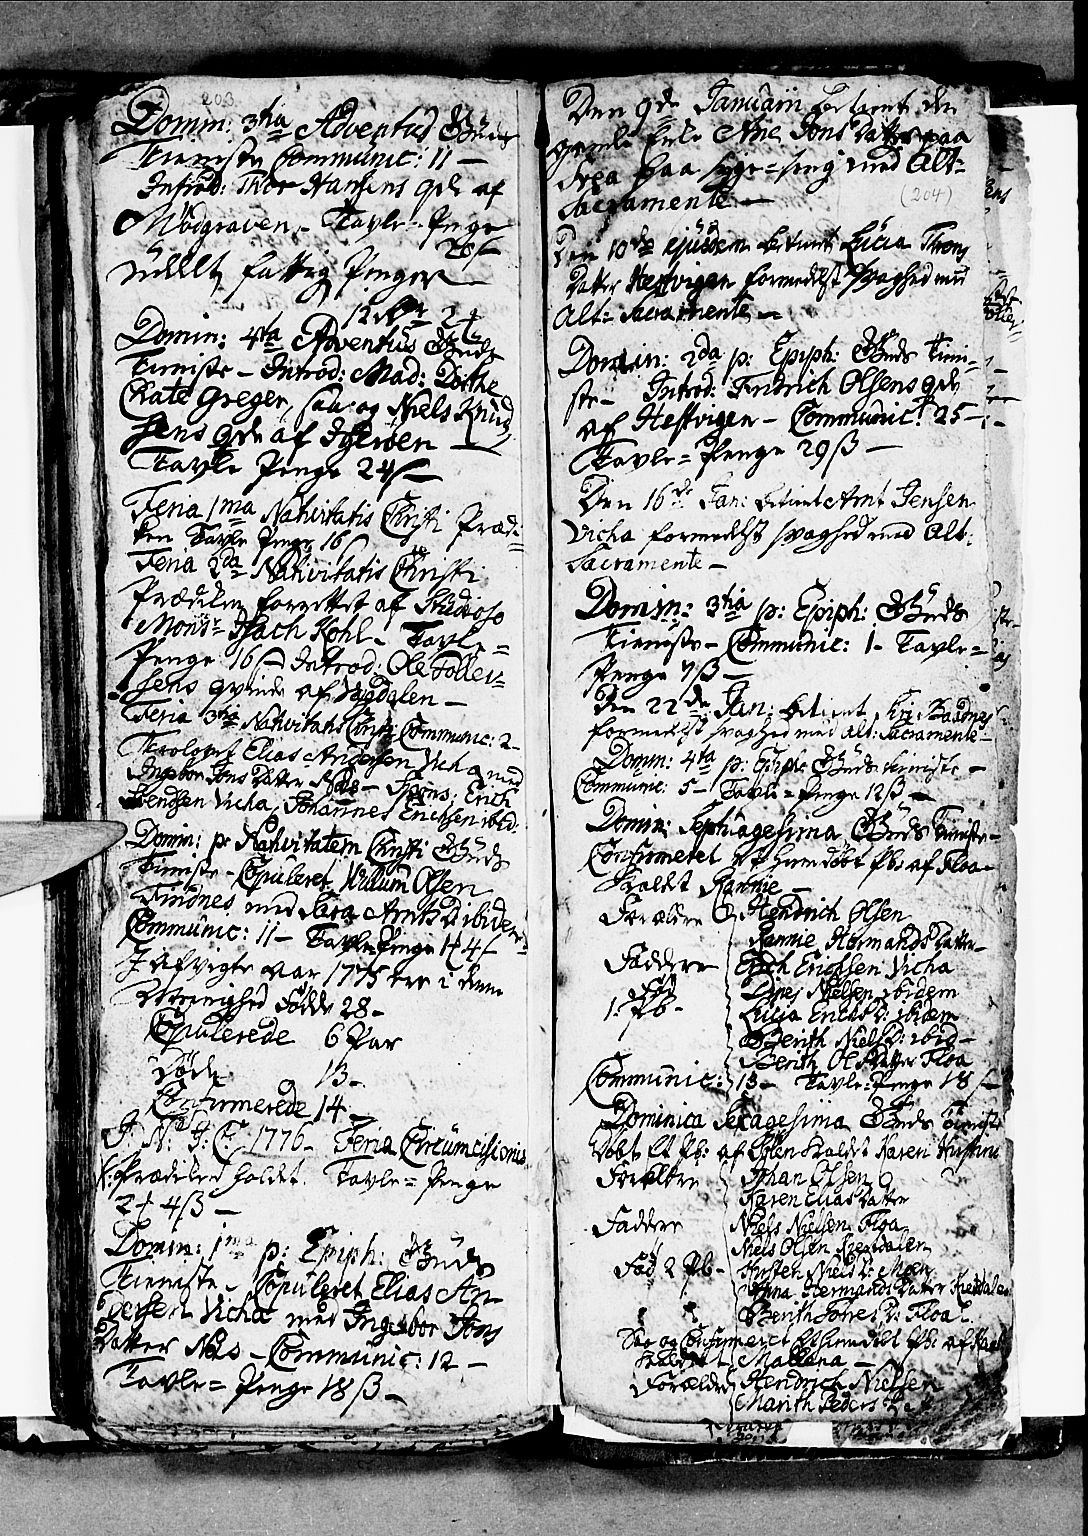 203
Domin: 3tia Adventus Guds
Tieniste Communic: 11 –
Introd: Thor Hansens qde af
Mødgraven – Tavle-Penge
28 ß
uddelt fattig Penger
12
Domin: 4ta Adventus Guds
Tieniste – Introd: Mad: Dorthe
Chate Greger, saa og Niels Knud
sens qde af
Tavle Penge 24 ß
Feria 1ma Nativitatis Christi Præd:
ken Tavle Penge 16
Feria 2da Nativitatis Christi
Prædiken forrettet af Studioso
Monsr Isach Kohl – Tavle=
Penge 16 ß Introd: Ole Follev=
sens qvinde af Vigdalen –
Feria 3tia Nativitatis Christi Communic: 2–
Trolovet Elias Andersen Vicha med
Ingebor Jons Datter Næs – Spons: Erich
Svendsen Vicha, Johannes Erichsen ibid:
Domin: p: Nativitatem Christi Guds
Tieniste – Copuleret Willum Olsen
Findnes med Sara Arnts D: ibidem
Communic: 11 – Tavle Penge 1 4 ß
I afvigte aar 1775 ere i denne
Menighed Fødde 28 –
Copulerede 6 Par
Døde 13 –
Confirmerede 14 –
I: N: J: C: 1776 – Feria Circumcisionis
Prædiken holdet. Tavle= Penge
2 4 ß –
Domin: 1ma p: Epiph: Guds
Tieniste – Copuleret Elias An
dersen Vicha med Ingebor Jons
Datter Næs – Communic: 12 –
Tavle= Penge 18 ß –
Den 9de Januarii betient den
gamle Ane Jons Datter paa
paa syge=seng med Alt=
(204)
Sacramente –
Den 10de ejusdem betient Lucia Thons
Datter Hestvigen formedelst svaghed med
Alt: Sacramente –
Domin: 2da p: Epiph: Guds Tieni=
ste – Introd: Fridrich Olsens qde
af Hestvigen – Communic: 25 –
Tavle= Penge 29 ß –
Den 16de Jan: betient Arnt Jensen
Vicha formedelst svaghed med Alt:
Sacramente –
Domin: 3tia p: Epiph: Guds
Tieniste – Communic: 1 – Tavle=
Penge 7 ß –
Den 22de Jan: betient
formedelst svaghed med Alt: Sacramente –
Domin: 4ta p: Epiph: Guds tieniste –
Communic: 5 – Tavle= Penge 12 ß –
Domin: Septuagesima Guds Tieniste –
Confirmeret et hiemdøbt Pb: af Floa –
Kaldet Rannie –
Forældre Hendrich Olsen
Rannie Hermands Datter –
Faddere Erich Erichsen Vicha
Fød Nielsen ibidem
1. Pb – Lucia Erichs D: ibidem
Berith Niels D: ibid –
Berith Ols Datter Floa
Communic: 13 – Tavle= Penge 18 ß –
Dominica Sexagesima Guds Tieniste
Døbt Et Pb: af kaldet Karen Kirstine
Forældre Johan Olsen
Karen Elias Datter
Faddere Niels Nielsen Floa
Niels Olsen
Fød 2 Pb – Kirsten Niels D: Moen
Anna Hermands Datter
Berith Jons D: Floa
Saa og Confirmeret et hiemdøbt Pb: af
kaldet Mallena –
Forældre Hendrich Nielsen
Marith Peders Dat